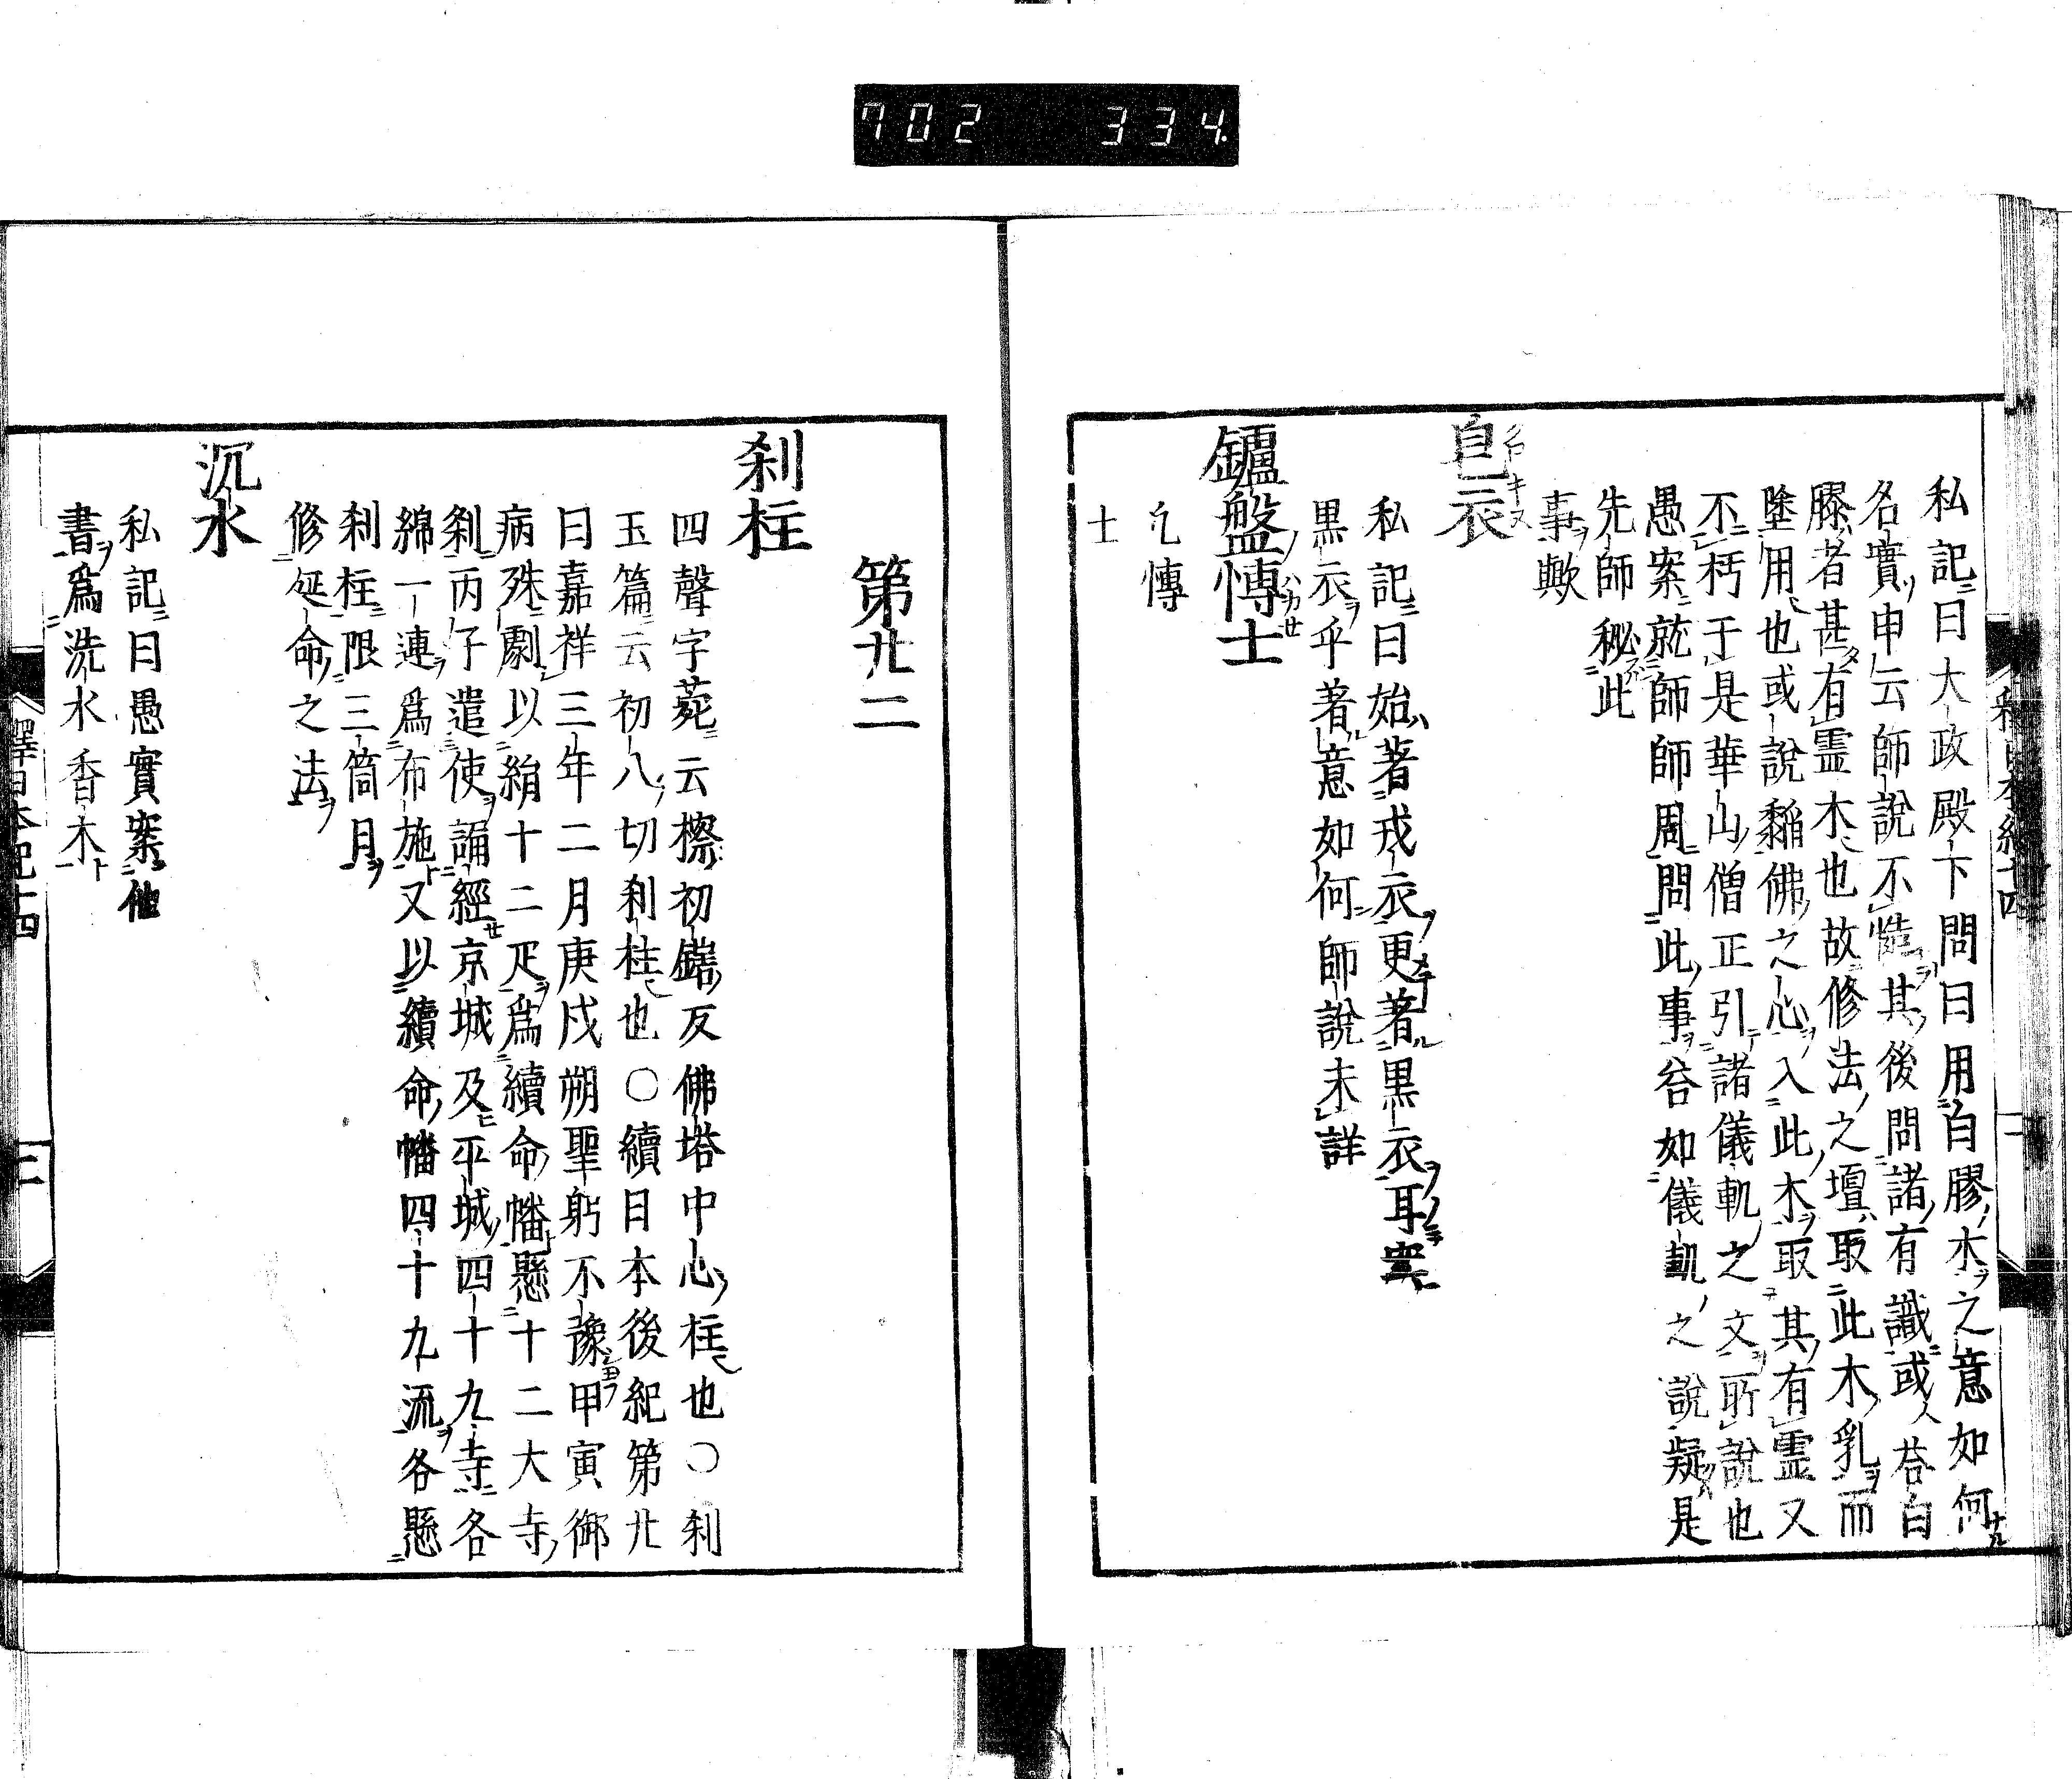 702 334
私記曰大政殿下問曰用白膠木之意如何
名實申云師說不慥其後問諸有識或人荅白
膠者甚有霊木也故修法之壇取此木乳而
塗用也或說黐佛之心入此木取其有霊又
不朽于是華山僧正引諸儀軌之文所說也
愚案就師師周問此事荅如儀軌之說疑是
先師秘此
事歟
皀衣
私記曰始著戎衣更著黒衣耳
黒衣乎著意如何師說未詳
鑪盤愽士
乞愽
士
第廿二
刹柱
四聲字苑云檫初鎋反佛塔中心柱也〇刹
玉篇云初八切刹柱也〇續日本後紀第廿
曰嘉祥三年二月庚戌朔聖躬不豫甲寅御
病殊劇以絹十二疋爲續命幡懸十二大寺
刹丙子遣使誦經京城及平城四十九寺各
綿一連爲布施又以續命幡四十九流各懸
刹柱限三箇月
修延命之法
沉水
私記曰愚實案他
書爲洗水香木
釋日本紀十四
三